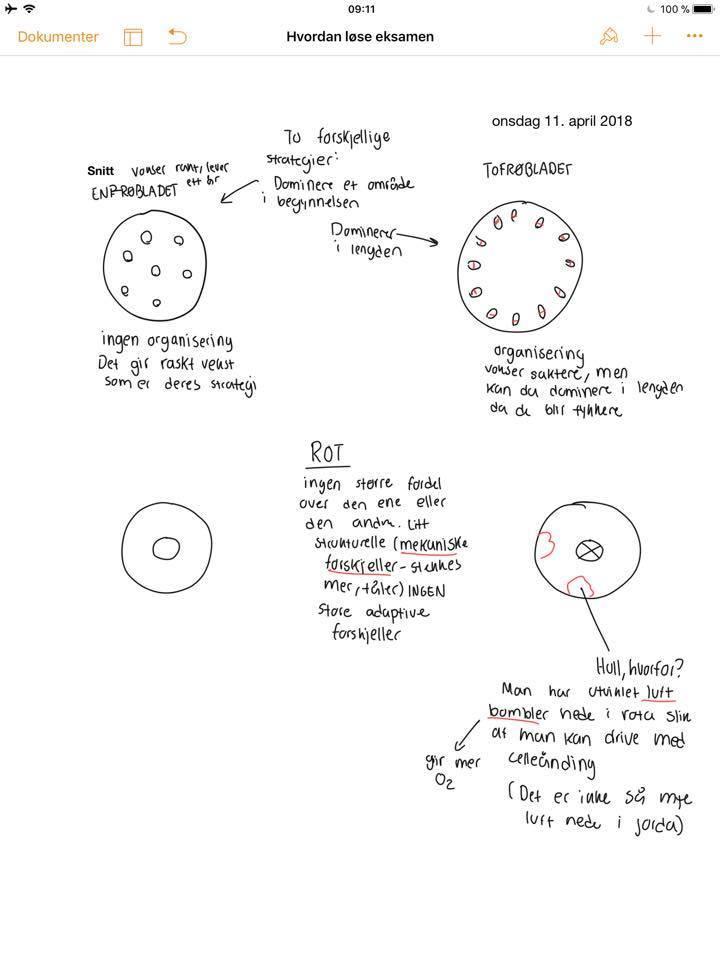 09:11
100 %
Dokumenter
Hvordan løse eksamen
onsdag 11. april 2018
To forskjellige
strategier:
Dominere et område
i begynnelsen
Snitt vokser raskt, lever
ett år
ENFRØBLADET
TOFRØBLADET
Dominerer
i lengden
ingen organisering
Det gir raskt vekst
som er deres strategi
organisering
vokser saktere, men
kan da dominere i lengden
da de blir tykkere
ROT
ingen større fordel
over den ene eller
den andre. Litt
strukturelle (mekaniske
forskjeller - stekkes
mer, tåler) INGEN
store adaptive
forskjeller
Hull, hvorfor?
Man har utviklet luft
bombler nede i rota slik
at man kan drive med
celleånding
gir mer
O2
(Det er ikke så mye
luft nede i jorda)